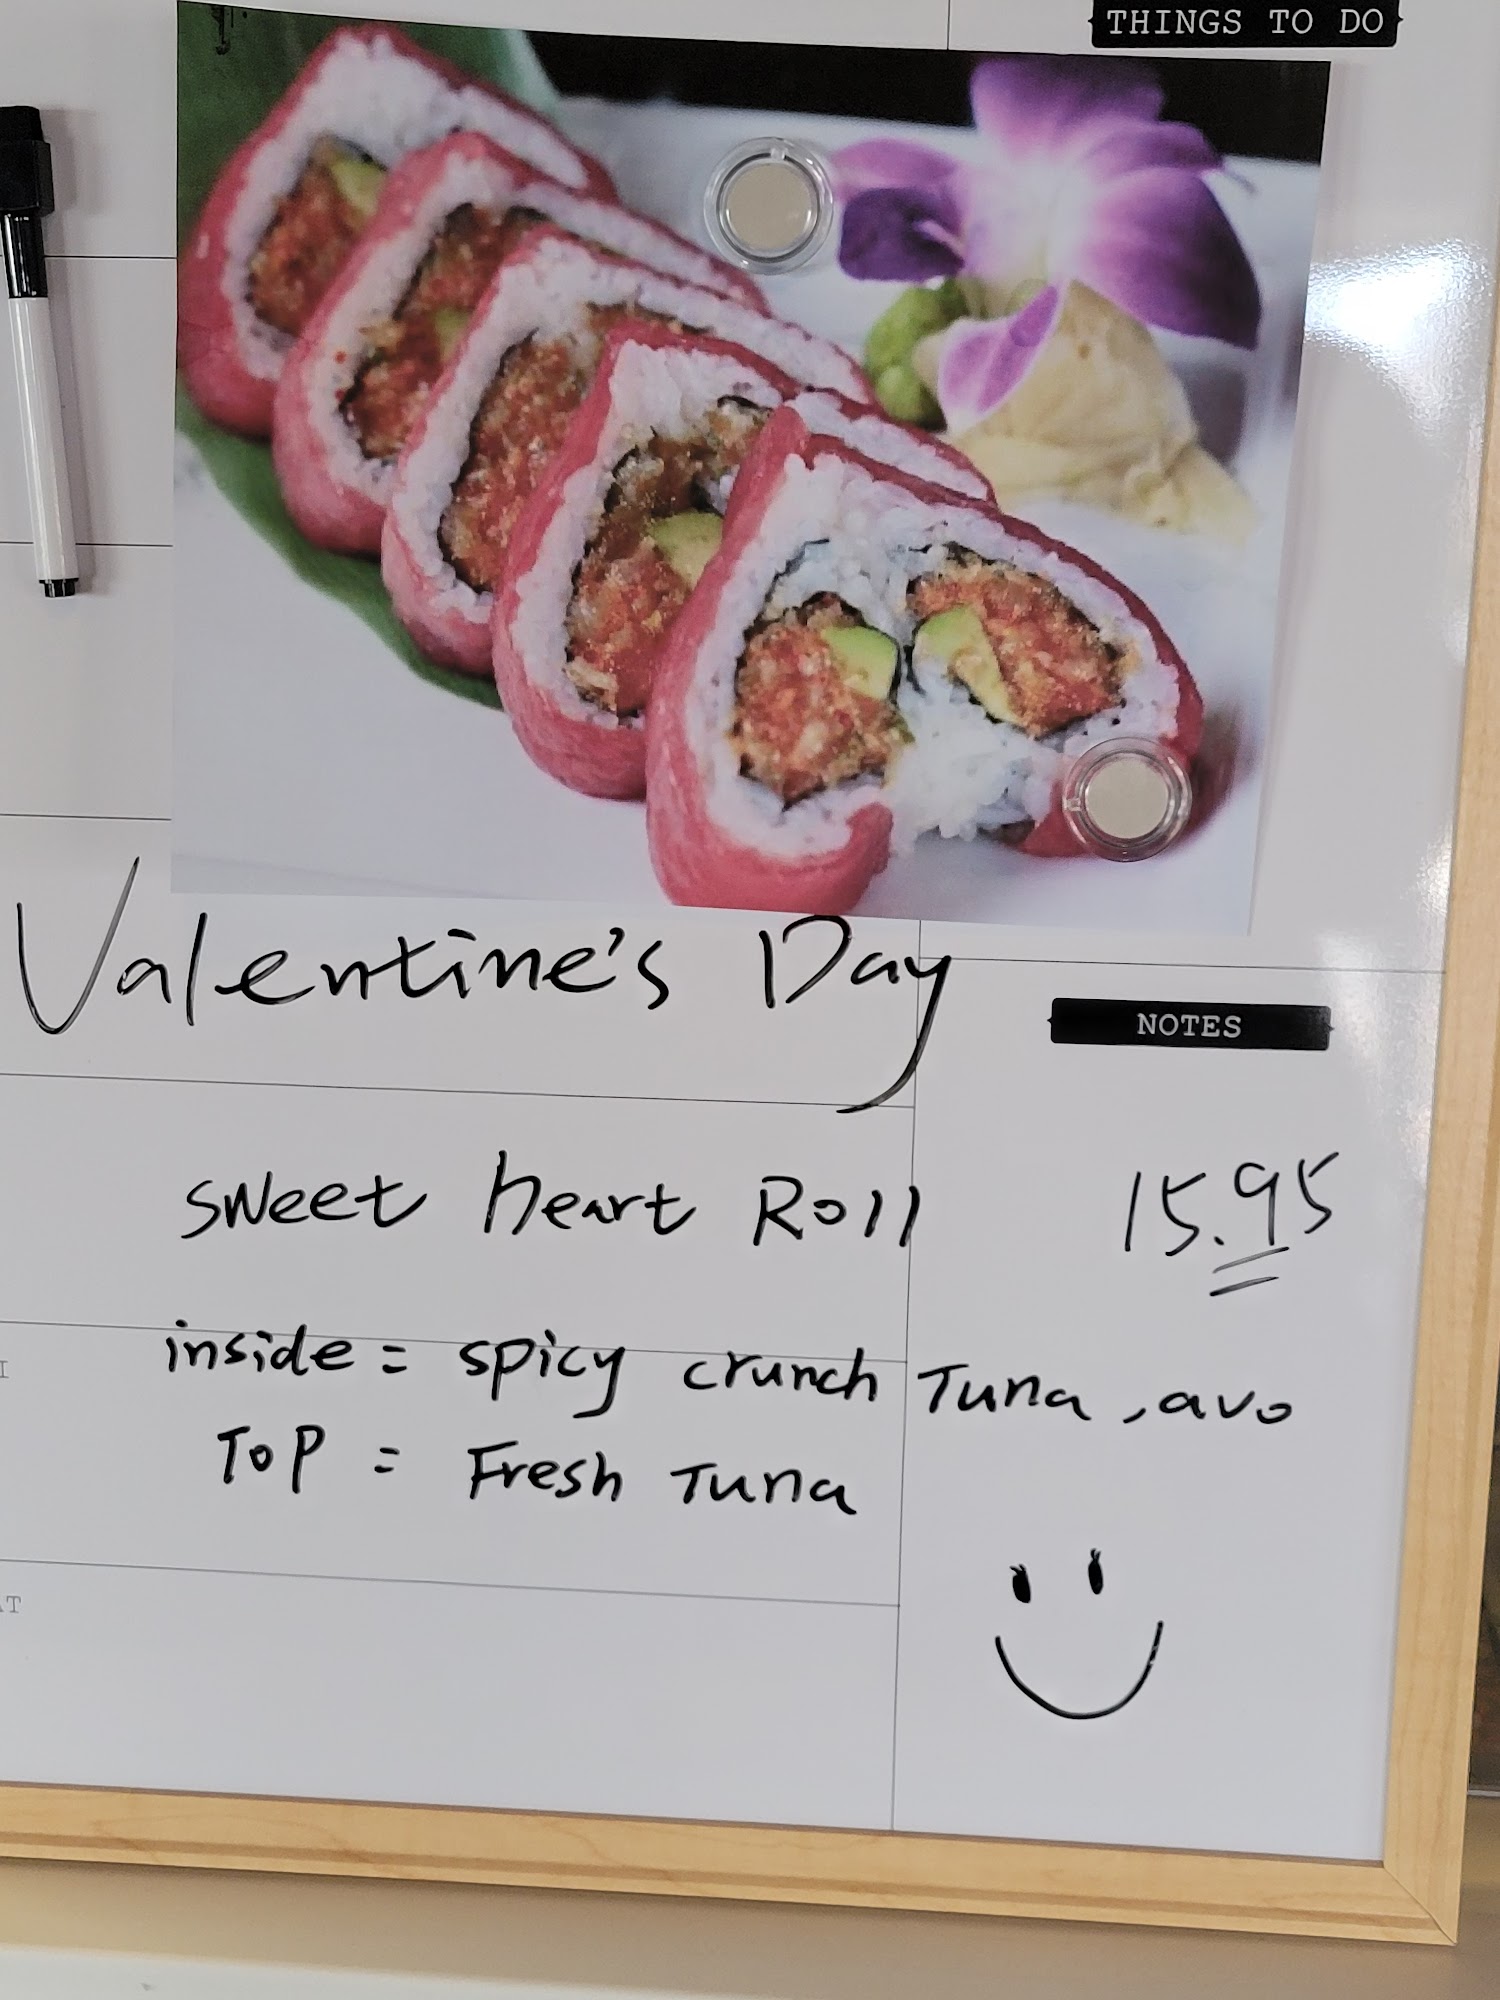 THINGS TO DO
Valentine's Day
NOTES
sweet heart Roll 15.95
inside = spicy crunch Tuna, avo
TOP = Fresh Tuna